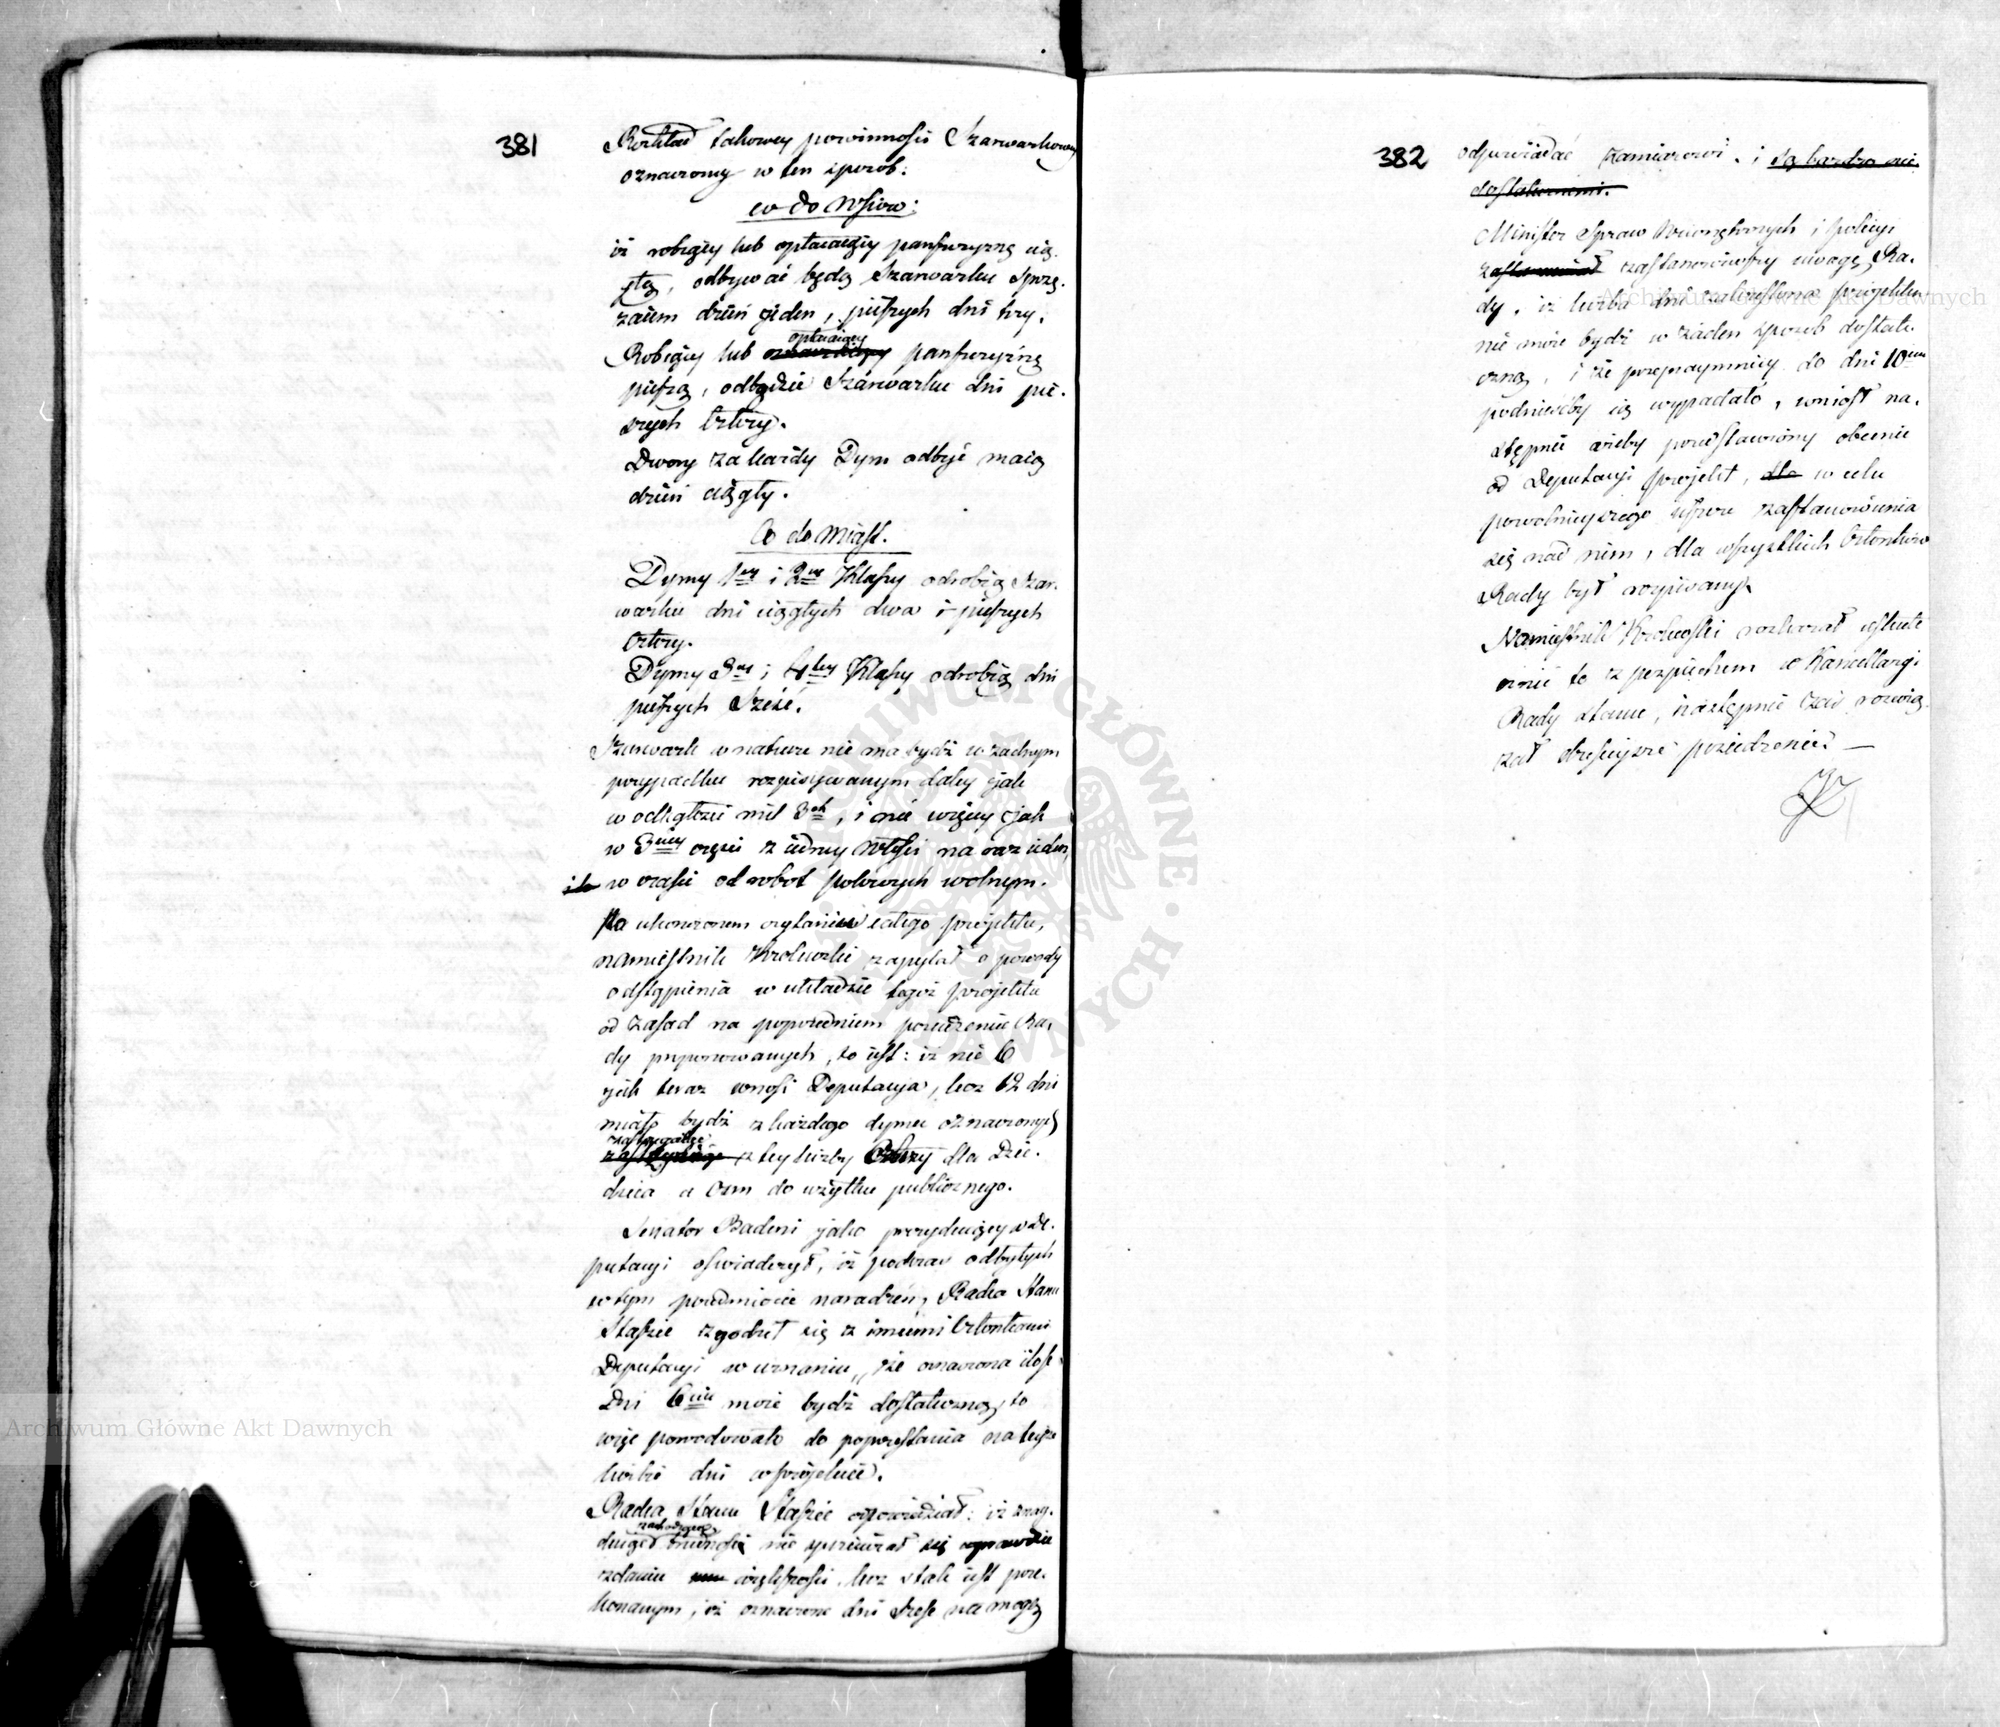 381
Rozkład takowey powinności Szarwarkowey
oznaczony w ten sposób:
co do Wsiow:
iż robiący lub opłacaiący pańszczyznę cią-
głą, odbywać będą Szarwarku sprzę-
żaiem dzień jeden, pieszych dni trzy.
opłacaiący
Robiący lub oznaczaiący pańszczyznę
pieszą, odbędzie Szarwarku dni pie-
szych cztery.
Dwory za każdy Dym odbyć maią
dzień ciągły.
Co do Miast.
Dymy 1ey i 2ey Klassy odrobią Szar-
warku dni ciągłych dwa i pieszych
cztery.
Dymy 3ey i 4tey Klassy odrobią dni
pieszych Sześć.
Szarwark w naturze nie ma bydź w żadnym
przypadku rozpisywanym daley jak
w odległości mil 3ch, i nie więcey jak
w 3ciey części z iedney Włości na raz ieden,
i to w czasie od robot polowych wolnym.
Po ukończonem czytaniu całego projektu,
Namiestnik Krolewski zapytał o powody
odstąpienia w układzie tegoż projektu
od zasad na poprzedniem posiedzeniu Ra-
dy proponowanych, to iest: iż nie 6
jak teraz wnosi Deputacya, lecz 12 dni
miało bydź z każdego dymu oznaczonych
z tey liczby Cztery dla Dzie-
dzica a Osm do użytku publicznego.
Senator Badeni jako prezyduiący w De-
putacyi oświadczył, iż podczas odbytych
w tym przedmiocie naradzeń, Radca Stanu
Staszic zgodził się z innemi Członkami
Deputacyi w uznaniu, że oznaczona ilość
Dni 6ciu może bydź dostateczną, to
więc powodowało do poprzestania na teyże
liczbie dni w projekcie.
Radca Stanu Staszic odpowiedział: iż wzg-
zachodzące
trudności nie sprzeciwiał się wprawdzie
zdaniu większości, lecz stale iest prze-
konanym, iż oznaczone dni sześć nie mogą
382
odpowiadać zamiarowi. i są bardzo nie
dostatecznemi.
Minister Spraw Wewnętrznych i Policyi
zastanowiwszy uwagę Ra-
dy, iż liczba dni zakreślona projektem
nie może bydź w żaden sposób dostate-
czną, i że przynaymniey do dni 10ciu
podnieśćby ią wypadało, wniosł na-
stępnie ażeby przedstawiony obecnie
od Deputacyi projekt, dla w celu
powolnieyszego iescze zastanowienia
się nad nim, dla wszystkich Członków
Rady był rozpisany.
Namiestnik Krolewski rozkazał uskute-
cznić to z pospiechem w Kancellaryi
Rady Stanu, następnie zaś rozwią-
zał dzisieysze posiedzenie. —
Archiwum Główne Akt Dawnych
Archiwum Główne Akt Dawnych
ARCHIWUM GŁÓWNE AKT DAWNYCH